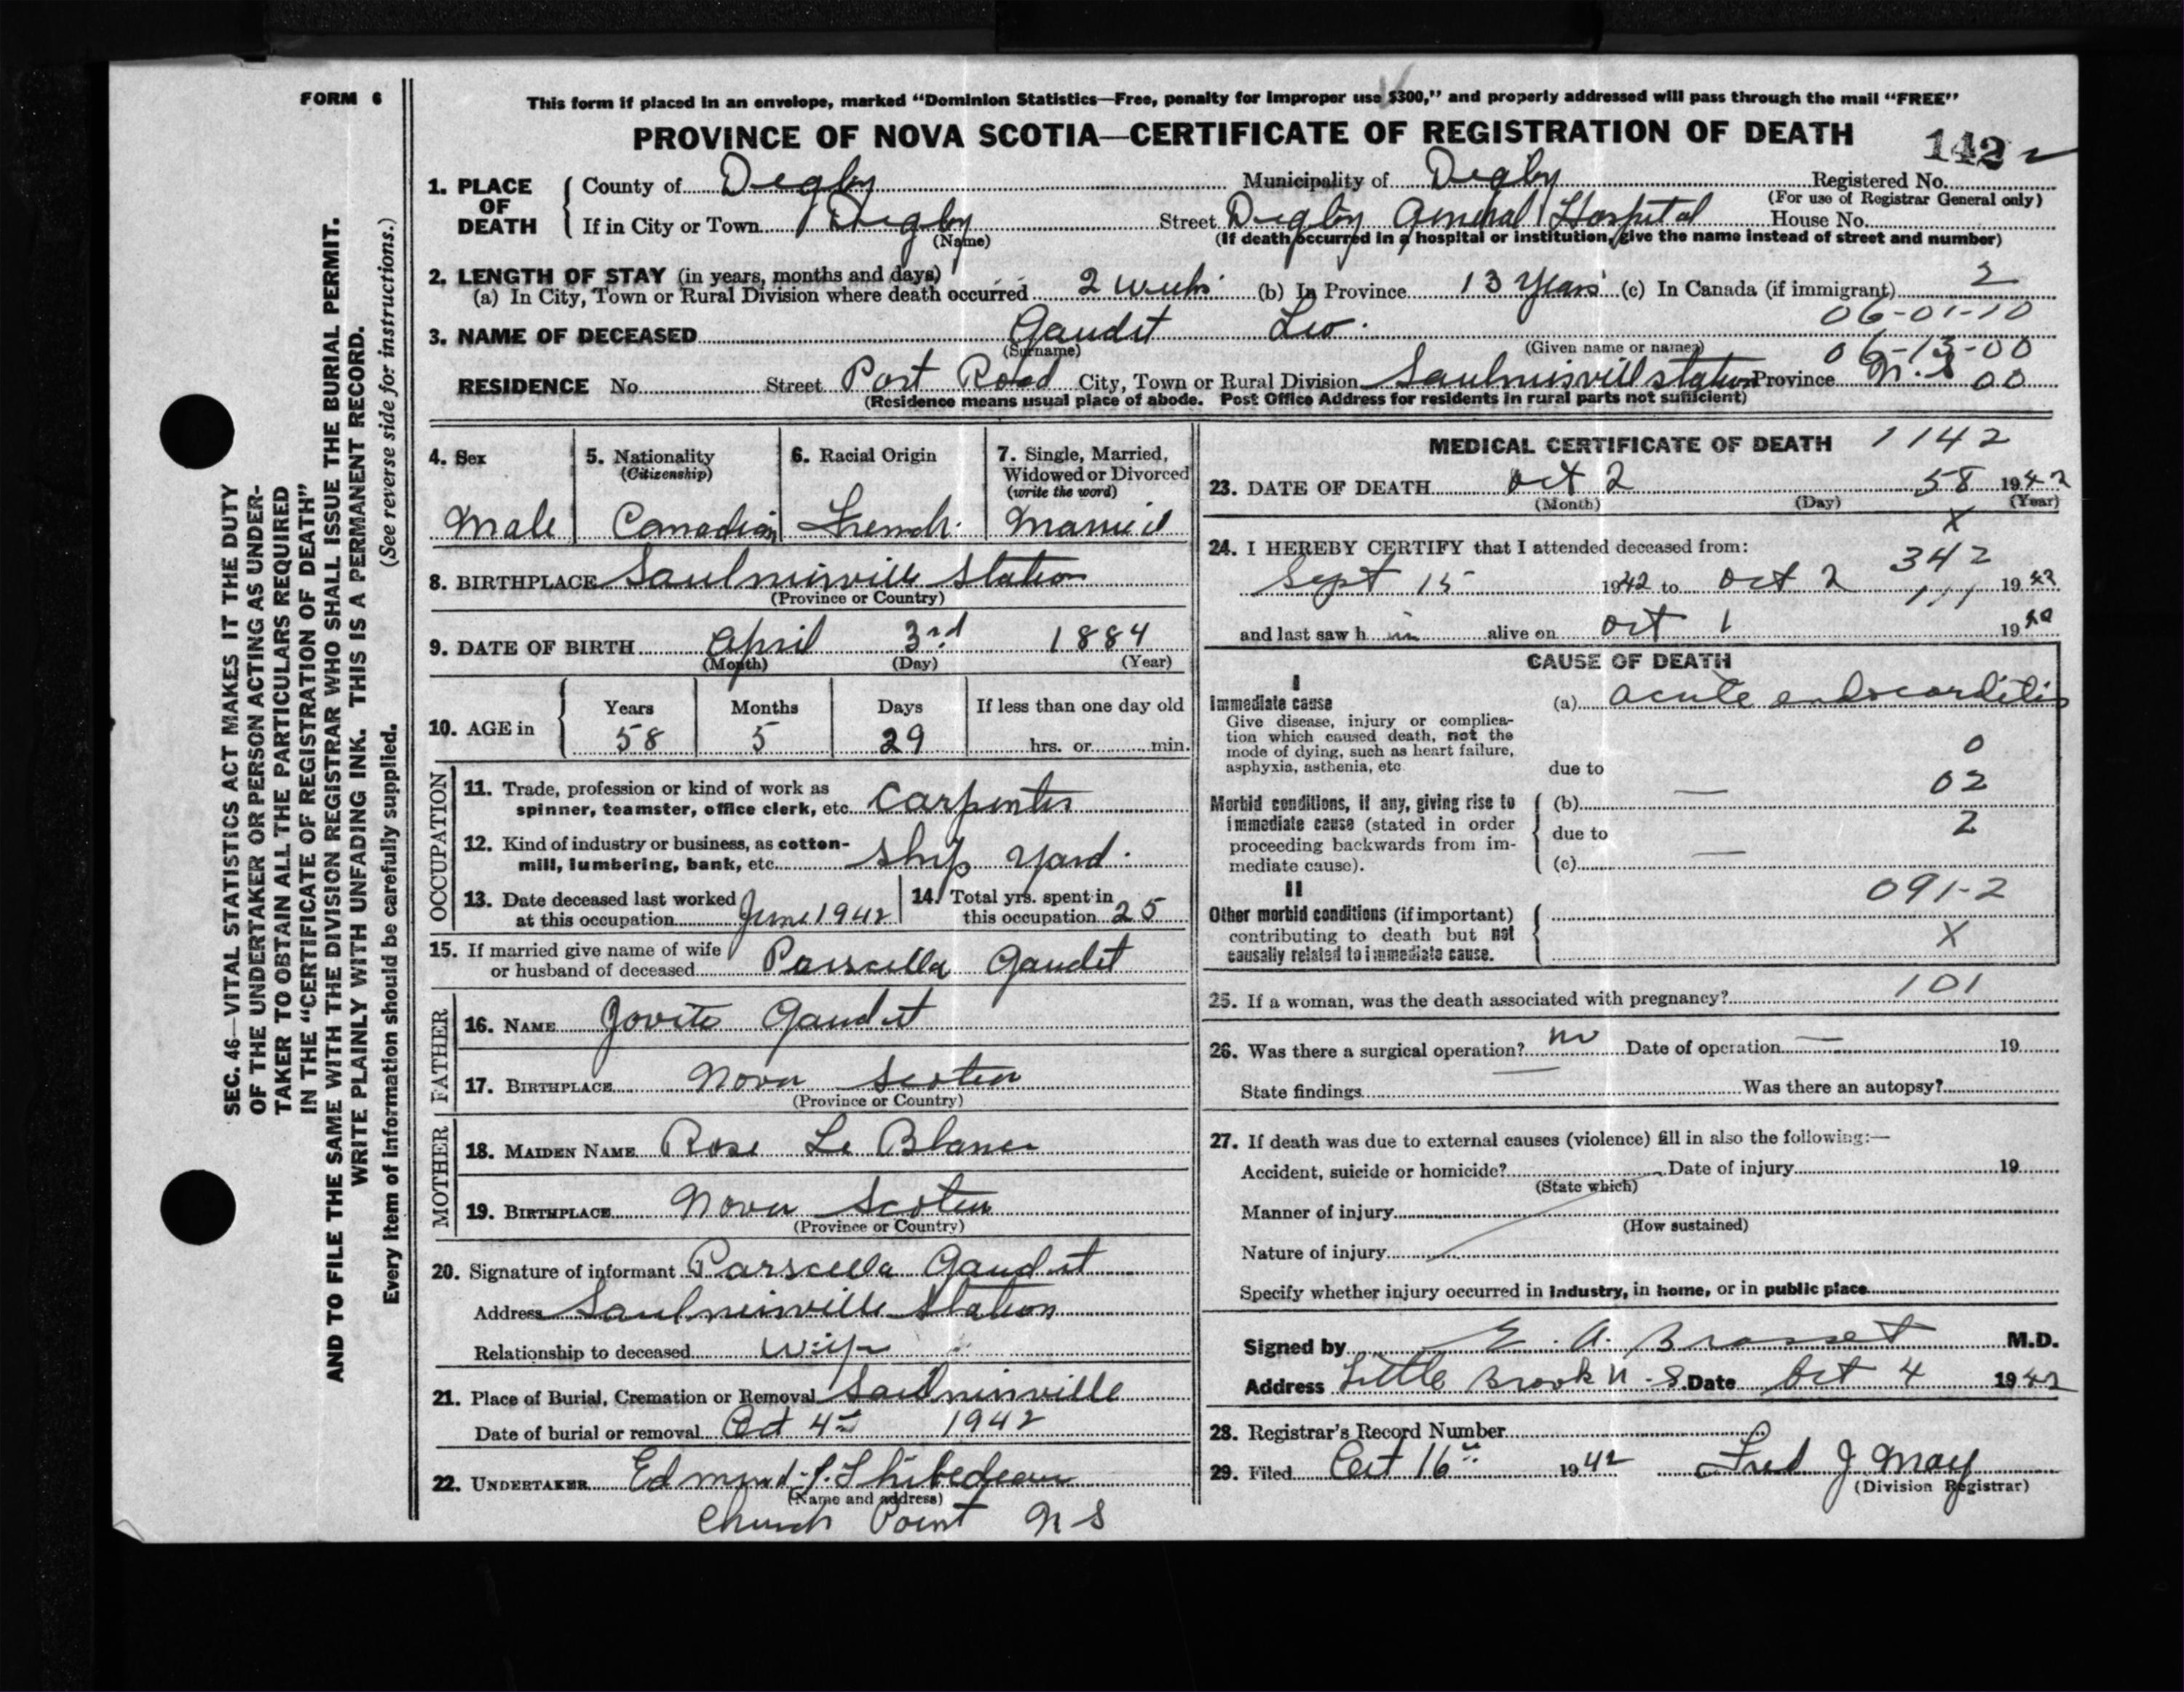 FORM 6
This form if placed in an envelope, marked “Dominion Statistics—Free, penalty for improper use $300,” and properly addressed will pass through the mail “FREE”
PROVINCE OF NOVA SCOTIA—CERTIFICATE OF REGISTRATION OF DEATH
142
SEC. 46—VITAL STATISTICS ACT MAKES IT THE DUTY
OF THE UNDERTAKER OR PERSON ACTING AS UNDER-
TAKER TO OBTAIN ALL THE PARTICULARS REQUIRED
IN THE “CERTIFICATE OF REGISTRATION OF DEATH”
AND TO FILE THE SAME WITH THE DIVISION REGISTRAR WHO SHALL ISSUE THE BURIAL PERMIT.
WRITE PLAINLY WITH UNFADING INK. THIS IS A PERMANENT RECORD.
Every item of information should be carefully supplied. (See reverse side for instructions.)
1. PLACE OF DEATH County of Digby Municipality of Digby Registered No.
(For use of Registrar General only)
If in City or Town Digby Street Digby General Hospital House No.
(Name) (If death occurred in a hospital or institution, give the name instead of street and number)
2. LENGTH OF STAY (in years, months and days)
(a) In City, Town or Rural Division where death occurred 2 weeks (b) In Province 13 Years (c) In Canada (if immigrant) 2
06-01-10
3. NAME OF DECEASED Gaudet Leo.
(Surname) (Given name or names) 06-13-00
RESIDENCE No. Street Port Road City, Town or Rural Division Saulnierville Station Province N.S 00
(Residence means usual place of abode. Post Office Address for residents in rural parts not sufficient)
4. Sex
Male
5. Nationality
(Citizenship)
Canadian
6. Racial Origin
French.
7. Single, Married,
Widowed or Divorced
(write the word)
Married
8. BIRTHPLACE Saulnierville Station
(Province or Country)
9. DATE OF BIRTH April 3rd 1884
(Month) (Day) (Year)
10. AGE in Years Months Days If less than one day old
58 5 29 hrs. or min.
OCCUPATION
11. Trade, profession or kind of work as
spinner, teamster, office clerk, etc. Carpenter
12. Kind of industry or business, as cotton-
mill, lumbering, bank, etc. Ship Yard.
13. Date deceased last worked
at this occupation June 1942
14. Total yrs. spent in
this occupation 25
15. If married give name of wife
or husband of deceased Parscella Gaudet
FATHER
16. NAME Jovite Gaudet
17. BIRTHPLACE Nova Scotia
(Province or Country)
MOTHER
18. MAIDEN NAME Rose Le Blanc
19. BIRTHPLACE Nova Scotia
(Province or Country)
20. Signature of informant Parscella Gaudet
Address Saulnierville Station
Relationship to deceased wife
21. Place of Burial, Cremation or Removal Saulnierville
Date of burial or removal Oct 4th 1942
22. UNDERTAKER Edmund J. Thibedeau
(Name and address)
Church Point N S
MEDICAL CERTIFICATE OF DEATH 1142
23. DATE OF DEATH Oct 2 58 1942
(Month) (Day) (Year)
X
24. I HEREBY CERTIFY that I attended deceased from:
342
Sept 15 1942 to Oct 2 1942
111
and last saw h im alive on Oct 1 19
CAUSE OF DEATH
I
Immediate cause (a) acute endocarditis
Give disease, injury or complica-
tion which caused death, not the
mode of dying, such as heart failure,
asphyxia, asthenia, etc. due to
0
02
Morbid conditions, if any, giving rise to (b) —
immediate cause (stated in order due to 2
proceeding backwards from im-
mediate cause). (c) —
II
091-2
Other morbid conditions (if important)
contributing to death but not X
causally related to immediate cause.
25. If a woman, was the death associated with pregnancy? 101
26. Was there a surgical operation? no Date of operation — 19
State findings — Was there an autopsy?
27. If death was due to external causes (violence) fill in also the following:—
Accident, suicide or homicide? Date of injury 19
(State which)
Manner of injury
(How sustained)
Nature of injury
Specify whether injury occurred in industry, in home, or in public place
Signed by E. A. Brasset M.D.
Address Little Brook N.S. Date Oct 4 1942
28. Registrar’s Record Number
29. Filed Oct 16th 1942 Fred J May
(Division Registrar)